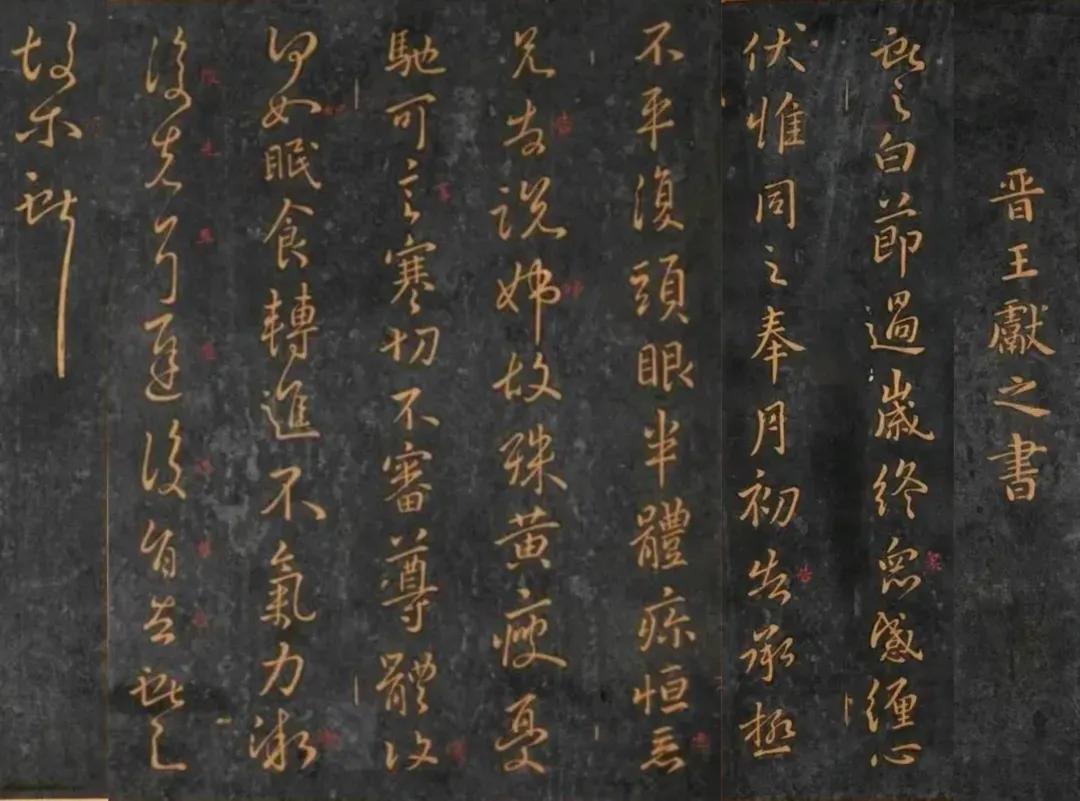 晋王獻之書
獻之白節過歲終眾感纏心
伏惟同之奉月初告承極
不平復頭眼半體疼恒惡
兄告說姊故殊黃瘦憂
馳可言寒切不審尊體復
何如眠食轉進不氣力漸
復耳遲復告獻之